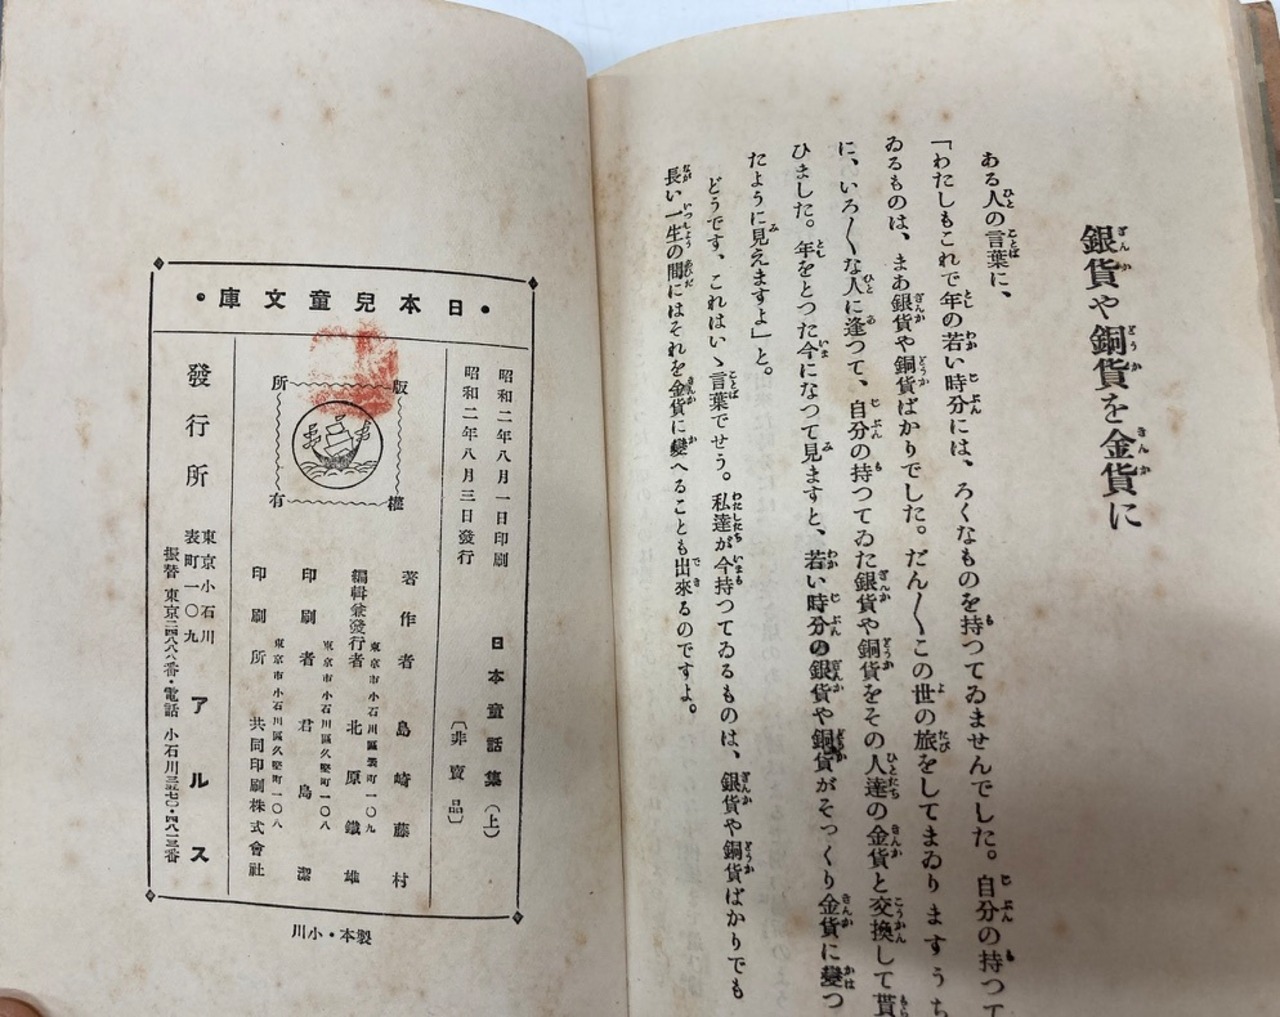 銀貨や銅貨を金貨に
ある人の言葉に、
「わたしもこれで年の若い時分には、ろくなものを持つてゐませんでした。自分の持つて
ゐるものは、まあ銀貨や銅貨ばかりでした。だん〱この世の旅をしてまゐりますうち
に、いろ〱な人に逢つて、自分の持つてゐた銀貨や銅貨をその人達の金貨と交換して貰
ひました。年をとつた今になつて見ますと、若い時分の銀貨や銅貨がそつくり金貨に變つ
たように見えますよ」と。
どうです、これはいゝ言葉でせう。私達が今持つてゐるものは、銀貨や銅貨ばかりでも
長い一生の間にはそれを金貨に變へることも出來るのですよ。
•日本兒童文庫•
昭和二年八月一日印刷
昭和二年八月三日發行
日本童話集（上）
〔非賣品〕
版權所有
著作者 島崎藤村
東京市小石川區表町一〇九
編輯兼發行者 北原鐵雄
東京市小石川區久堅町一〇八
印刷者 君島潔
東京市小石川區久堅町一〇八
印刷所 共同印刷株式會社
發行所 東京小石川表町一〇九 アルス
振替 東京二四八八八番・電話 小石川三五七〇・四八一三番
製本・小川